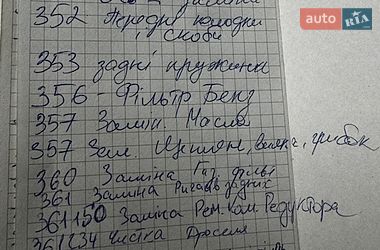 352 Передні колодки
і скоби
353 задні пружини
356 - Фільтр Бенз
357 Замін. Масла
357 Зам.
360 Заміна Газ. фільт
361 Заміна Ричагів задніх
361150 Заміна Рем. ком. Редуктора
361234 Чистка Дроселя
auto RIA